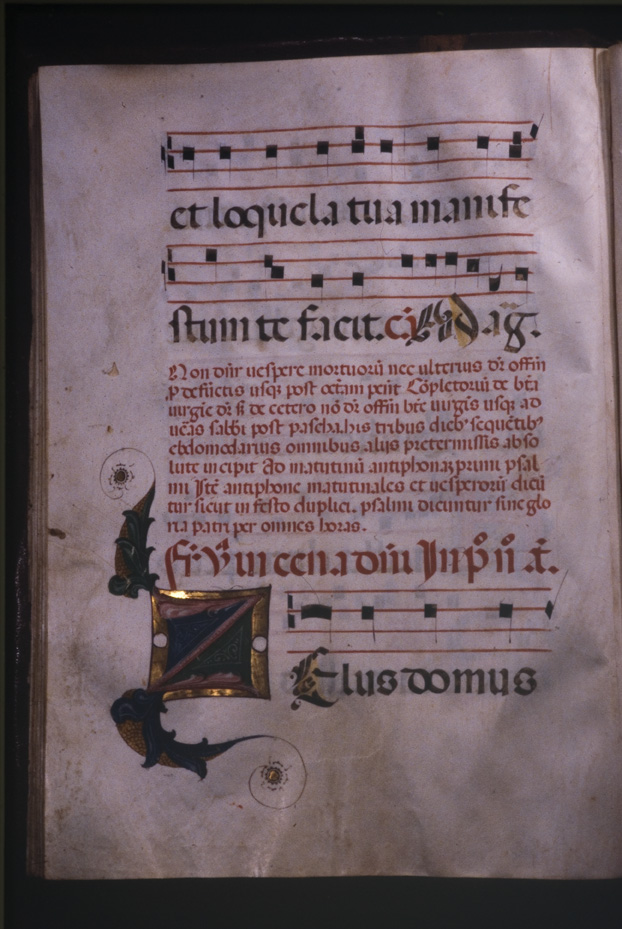 et loquela tua manife
stum te facit. Ad ag̃.
Non dñr uespere mortuorũ nec ulterius dr̃ offm̃
ꝓ defũctis usqꝫ post oct̃am pent̃ Cõpletoriũ de bt̃a
uirgĩe dr̃ sĩ de cetero nõ dr̃ offm̃ bt̃e uirgĩs usqꝫ ad
sabb̃i post pascha. his tribus dieb' sequẽtib'
ebdomodarius omnibus alijs pretermissis abso
lute incipit Ad matutinũ antiphonaꝫ primi psal
mi Itẽ antiphone matutinales et uesperorũ dicũ
tur sicut in festo duplici. psalmi dicuntur sine glo
ria patri per omnes horas.
Fr̃ v̾ in cena dñi In p̾ ñ añ.
Z Elus domus